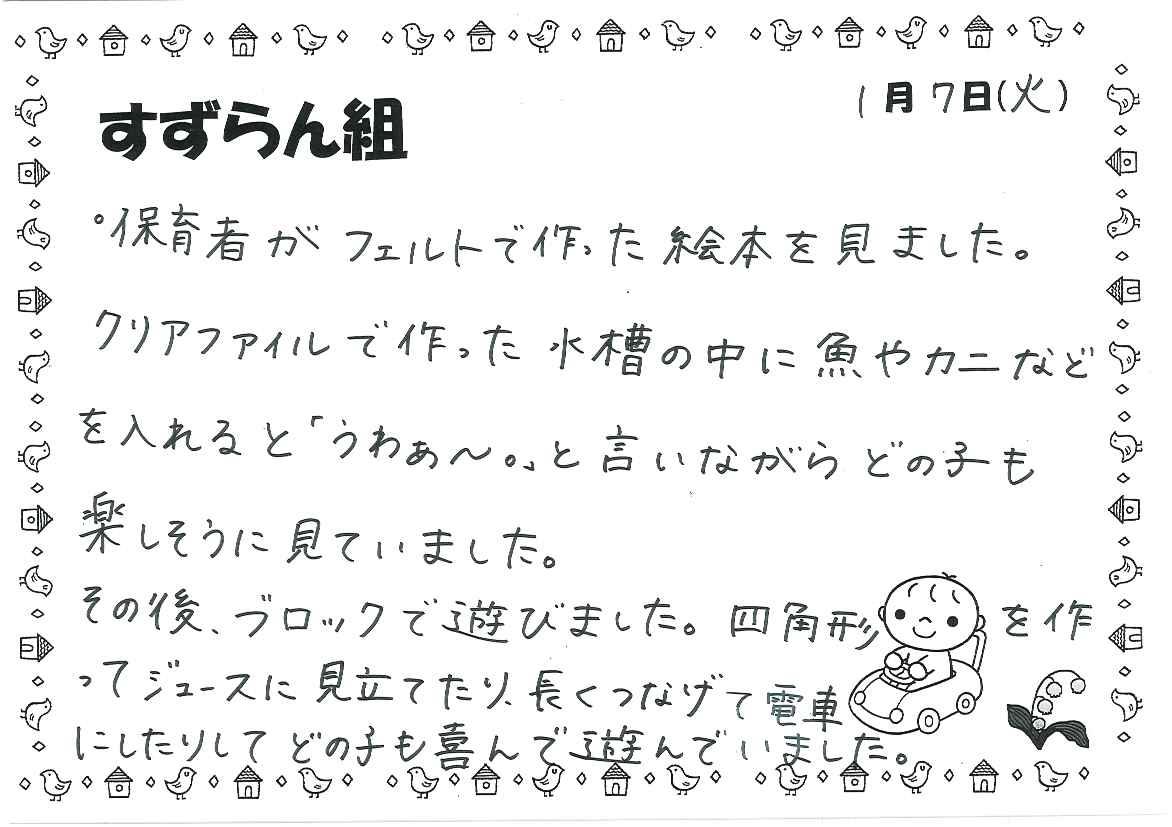 1月7日(火)
すずらん組
°保育者がフェルトで作った絵本を見ました。
クリアファイルで作った水槽の中に魚やカニなど
を入れると「うわぁ〜。」と言いながらどの子も
楽しそうに見ていました。
その後、ブロックで遊びました。四角形を作
ってジュースに見立てたり、長くつなげて電車
にしたりしてどの子も喜んで遊んでいました。